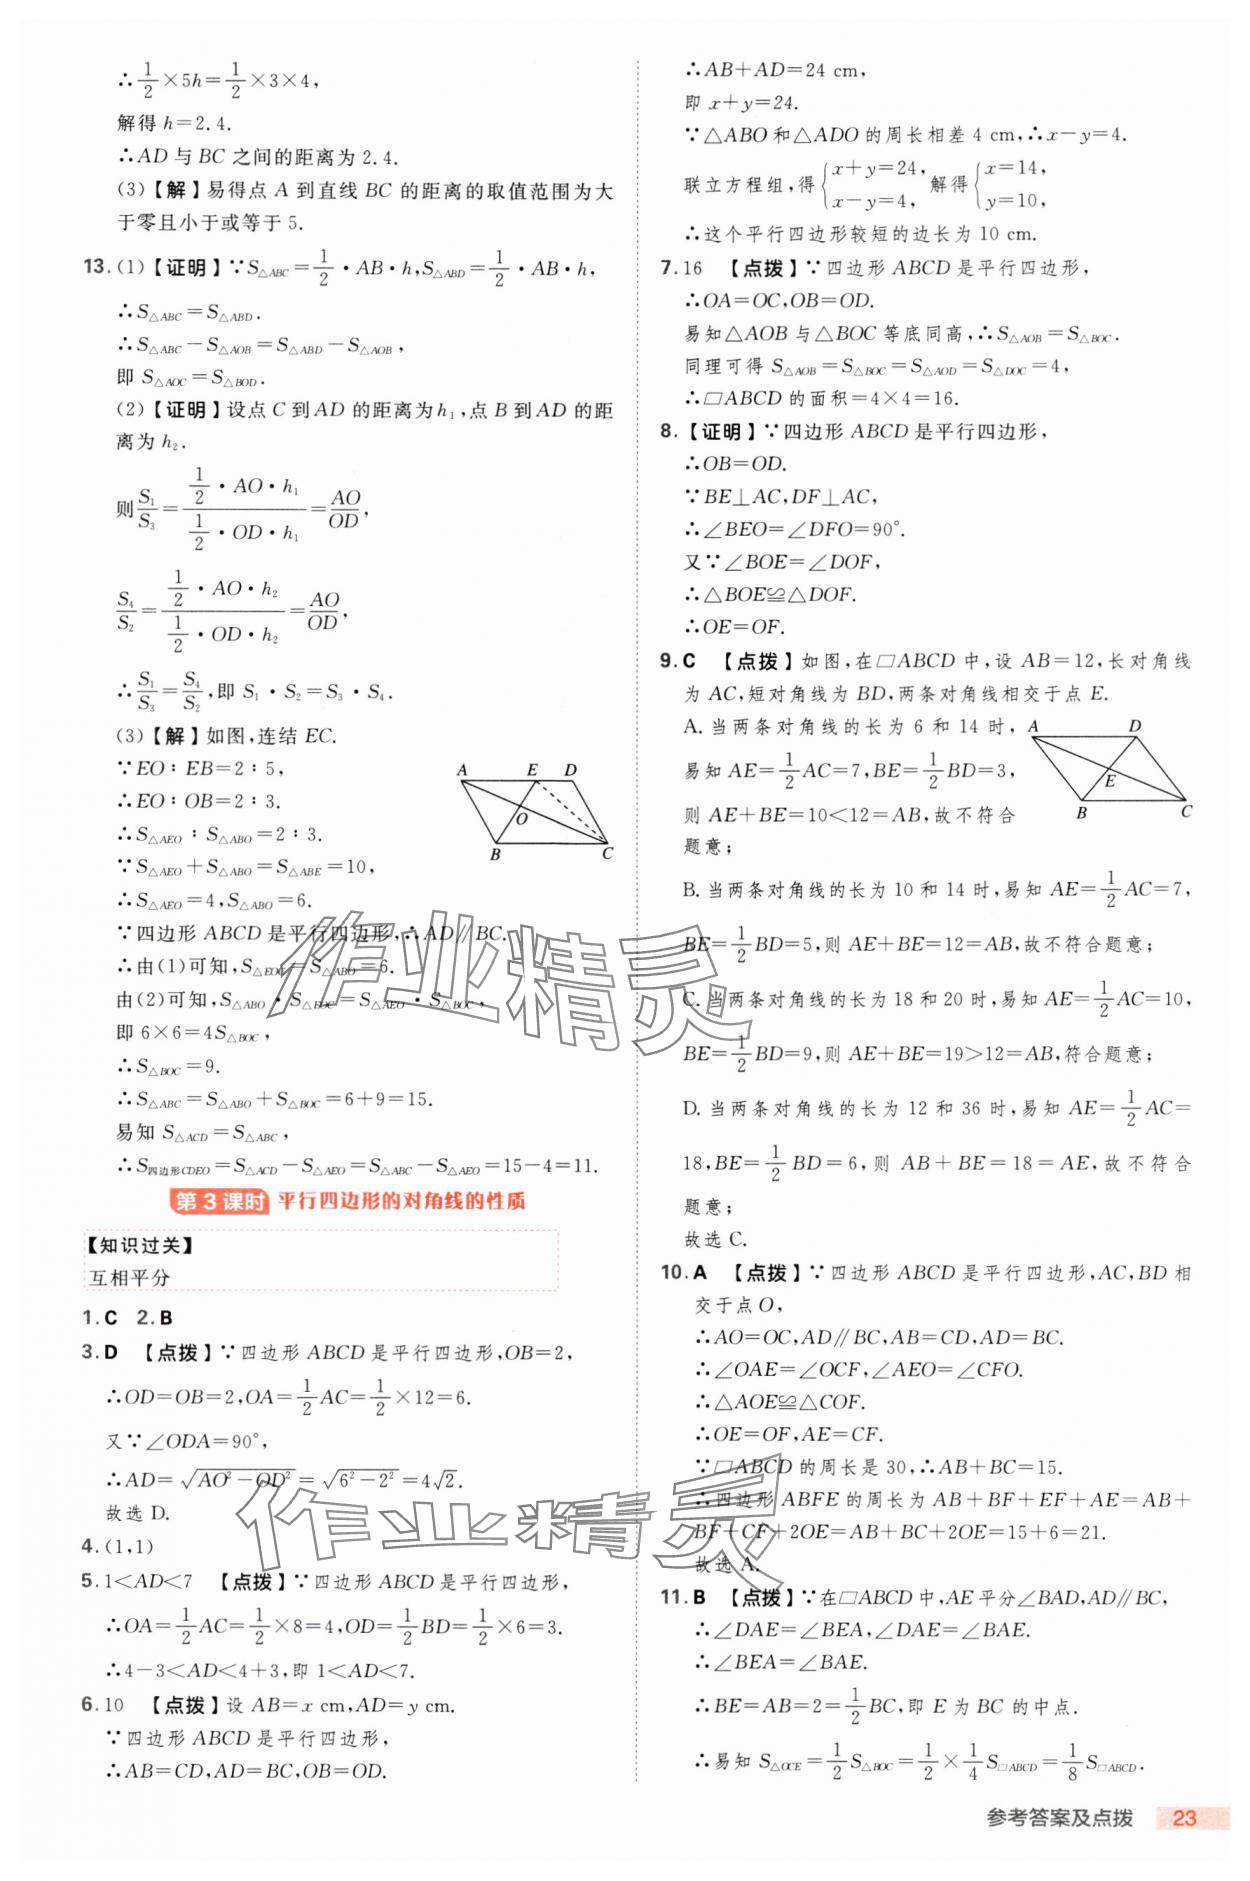 ∴1/2×5h=1/2×3×4,
解得 h=2.4.
∴AD 与 BC 之间的距离为 2.4.
(3)【解】易得点 A 到直线 BC 的距离的取值范围为大
于零且小于或等于 5.
13.(1)【证明】∵S△ABC=1/2·AB·h,S△ABD=1/2·AB·h,
∴S△ABC=S△ABD.
∴S△ABC-S△AOB=S△ABD-S△AOB,
即 S△AOC=S△BOD.
(2)【证明】设点 C 到 AD 的距离为 h₁,点 B 到 AD 的距
离为 h₂.
则 S₁/S₃=(1/2·AO·h₁)/(1/2·OD·h₁)=AO/OD,
S₄/S₂=(1/2·AO·h₂)/(1/2·OD·h₂)=AO/OD,
∴S₁/S₃=S₄/S₂,即 S₁·S₂=S₃·S₄.
(3)【解】如图,连结 EC.
∵EO∶EB=2∶5,
∴EO∶OB=2∶3.
∴S△AEO∶S△ABO=2∶3.
∵S△AEO+S△ABO=S△ABE=10,
∴S△AEO=4,S△ABO=6.
∵四边形 ABCD 是平行四边形,∴AD∥BC.
∴由(1)可知,S△EOC=S△ABO=6.
由(2)可知,S△ABO·S△EOC=S△AEO·S△BOC,
即 6×6=4S△BOC,
∴S△BOC=9.
∴S△ABC=S△ABO+S△BOC=6+9=15.
易知 S△ACD=S△ABC,
∴S四边形CDEO=S△ACD-S△AEO=S△ABC-S△AEO=15-4=11.
A E D
O
B C
第 3 课时 平行四边形的对角线的性质
【知识过关】
互相平分
1.C 2.B
3.D 【点拨】∵四边形 ABCD 是平行四边形,OB=2,
∴OD=OB=2,OA=1/2AC=1/2×12=6.
又∵∠ODA=90°,
∴AD=√(AO²-OD²)=√(6²-2²)=4√2.
故选 D.
4.(1,1)
5.1<AD<7 【点拨】∵四边形 ABCD 是平行四边形,
∴OA=1/2AC=1/2×8=4,OD=1/2BD=1/2×6=3.
∴4-3<AD<4+3,即 1<AD<7.
6.10 【点拨】设 AB=x cm,AD=y cm.
∵四边形 ABCD 是平行四边形,
∴AB=CD,AD=BC,OB=OD.
∴AB+AD=24 cm,
即 x+y=24.
∵△ABO 和△ADO 的周长相差 4 cm,∴x-y=4.
联立方程组,得{x+y=24, x-y=4, 解得{x=14, y=10,
∴这个平行四边形较短的边长为 10 cm.
7.16 【点拨】∵四边形 ABCD 是平行四边形,
∴OA=OC,OB=OD.
易知△AOB 与△BOC 等底同高,∴S△AOB=S△BOC.
同理可得 S△AOB=S△BOC=S△AOD=S△DOC=4,
∴□ABCD 的面积=4×4=16.
8.【证明】∵四边形 ABCD 是平行四边形,
∴OB=OD.
∵BE⊥AC,DF⊥AC,
∴∠BEO=∠DFO=90°.
又∵∠BOE=∠DOF,
∴△BOE≌△DOF.
∴OE=OF.
9.C 【点拨】如图,在□ABCD 中,设 AB=12,长对角线
为 AC,短对角线为 BD,两条对角线相交于点 E.
A.当两条对角线的长为 6 和 14 时,
易知 AE=1/2AC=7,BE=1/2BD=3,
则 AE+BE=10<12=AB,故不符合
题意;
A D
E
B C
B.当两条对角线的长为 10 和 14 时,易知 AE=1/2AC=7,
BE=1/2BD=5,则 AE+BE=12=AB,故不符合题意;
C.当两条对角线的长为 18 和 20 时,易知 AE=1/2AC=10,
BE=1/2BD=9,则 AE+BE=19>12=AB,符合题意;
D.当两条对角线的长为 12 和 36 时,易知 AE=1/2AC=
18,BE=1/2BD=6,则 AB+BE=18=AE,故不符合
题意;
故选 C.
10.A 【点拨】∵四边形 ABCD 是平行四边形,AC,BD 相
交于点 O,
∴AO=OC,AD∥BC,AB=CD,AD=BC.
∴∠OAE=∠OCF,∠AEO=∠CFO.
∴△AOE≌△COF.
∴OE=OF,AE=CF.
∵□ABCD 的周长是 30,∴AB+BC=15.
∴四边形 ABFE 的周长为 AB+BF+EF+AE=AB+
BF+CF+2OE=AB+BC+2OE=15+6=21.
故选 A.
11.B 【点拨】∵在□ABCD 中,AE 平分∠BAD,AD∥BC,
∴∠DAE=∠BEA,∠DAE=∠BAE.
∴∠BEA=∠BAE.
∴BE=AB=2=1/2BC,即 E 为 BC 的中点.
∴易知 S△OCE=1/2S△BOC=1/2×1/4S□ABCD=1/8S□ABCD.
作业精灵
作业精灵
参考答案及点拨 23